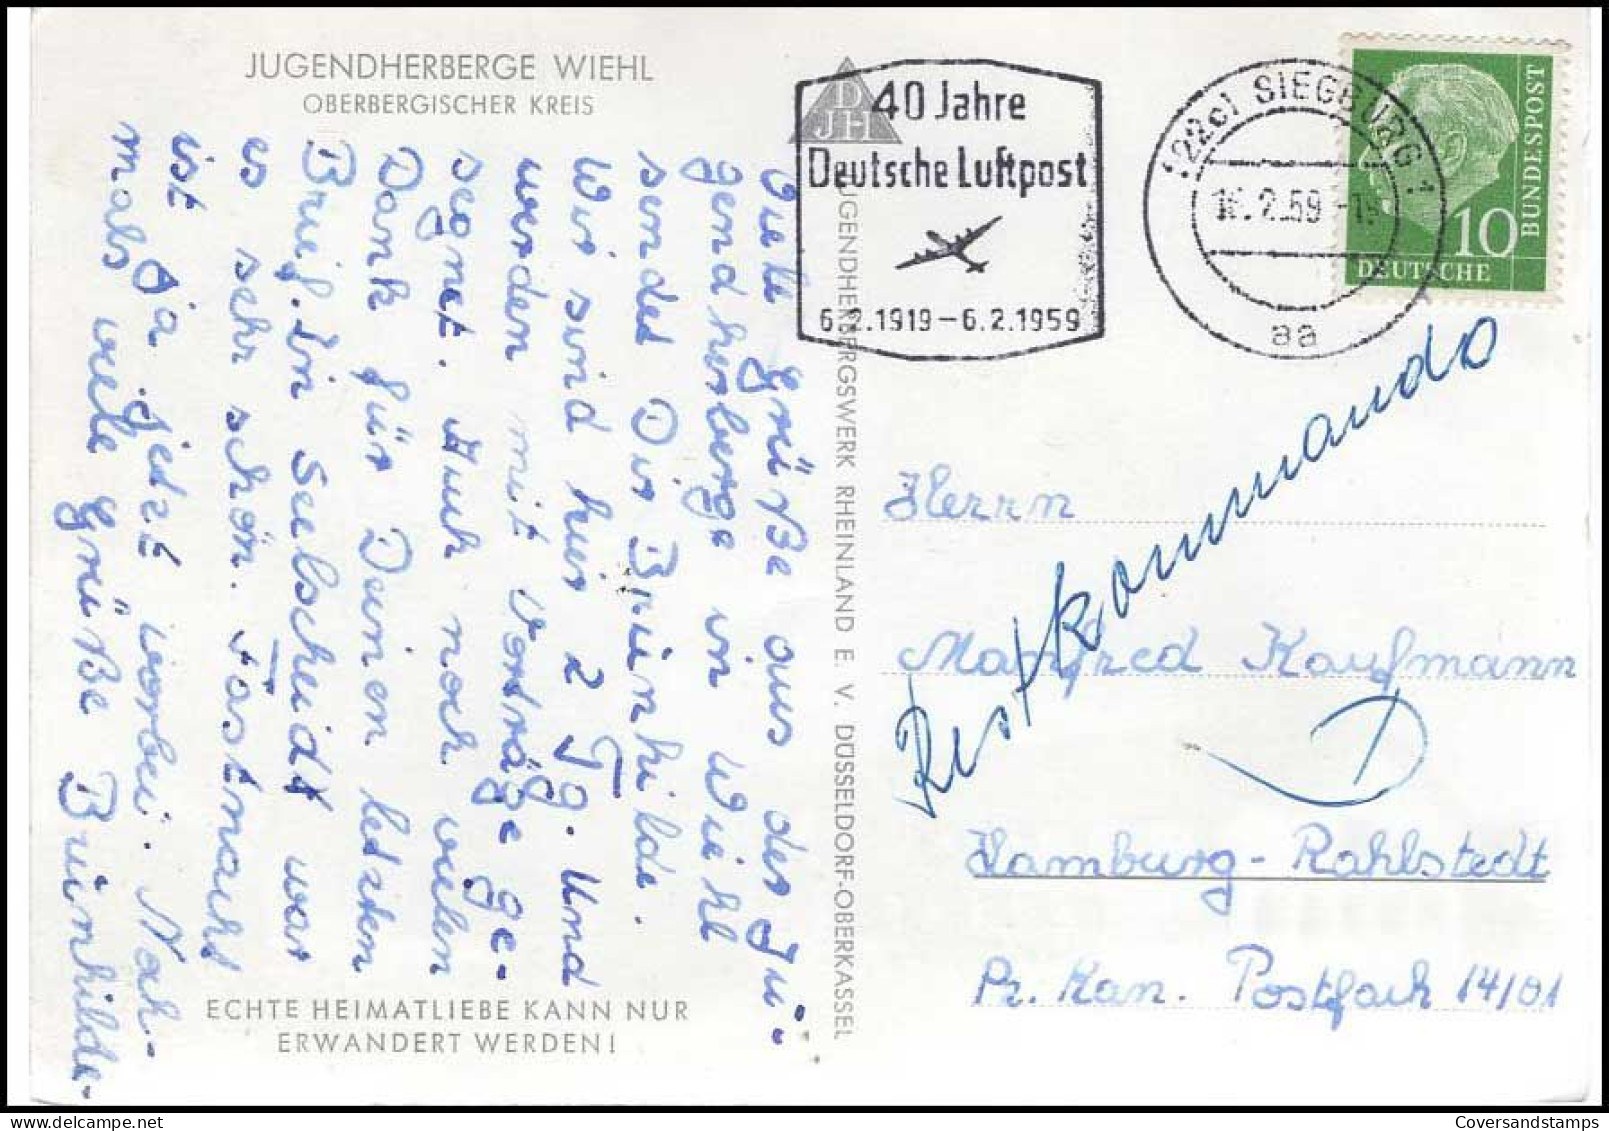 JUGENDHERBERGE WIEHL
OBERBERGISCHER KREIS
DJH
40 Jahre
Deutsche Luftpost
6.2.1919 – 6.2.1959
(22c) SIEGBURG 1
.2.59
aa
BUNDESPOST
10
DEUTSCHE
Viele Grüße aus der Ju-
gendherberge in Wiehl
sendet Dir Brünhilde.
Wir sind hier 2 Tg. Und
werden mit Vorträge ge-
segnet. Auch noch vielen
Dank für Deinen letzten
Brief. In Seelscheidt war
es sehr schön. Fastnacht
ist ja jetzt vorbei. Noch-
mals viele Grüße Brünhilde.
ECHTE HEIMATLIEBE KANN NUR
ERWANDERT WERDEN!
JUGENDHERBERGSWERK RHEINLAND E. V. DÜSSELDORF-OBERKASSEL
Restkommando
Herrn
Manfred Kaufmann
Hamburg-Rahlstedt
Pz. Kan. Postfach 14/01
Coversandstamps